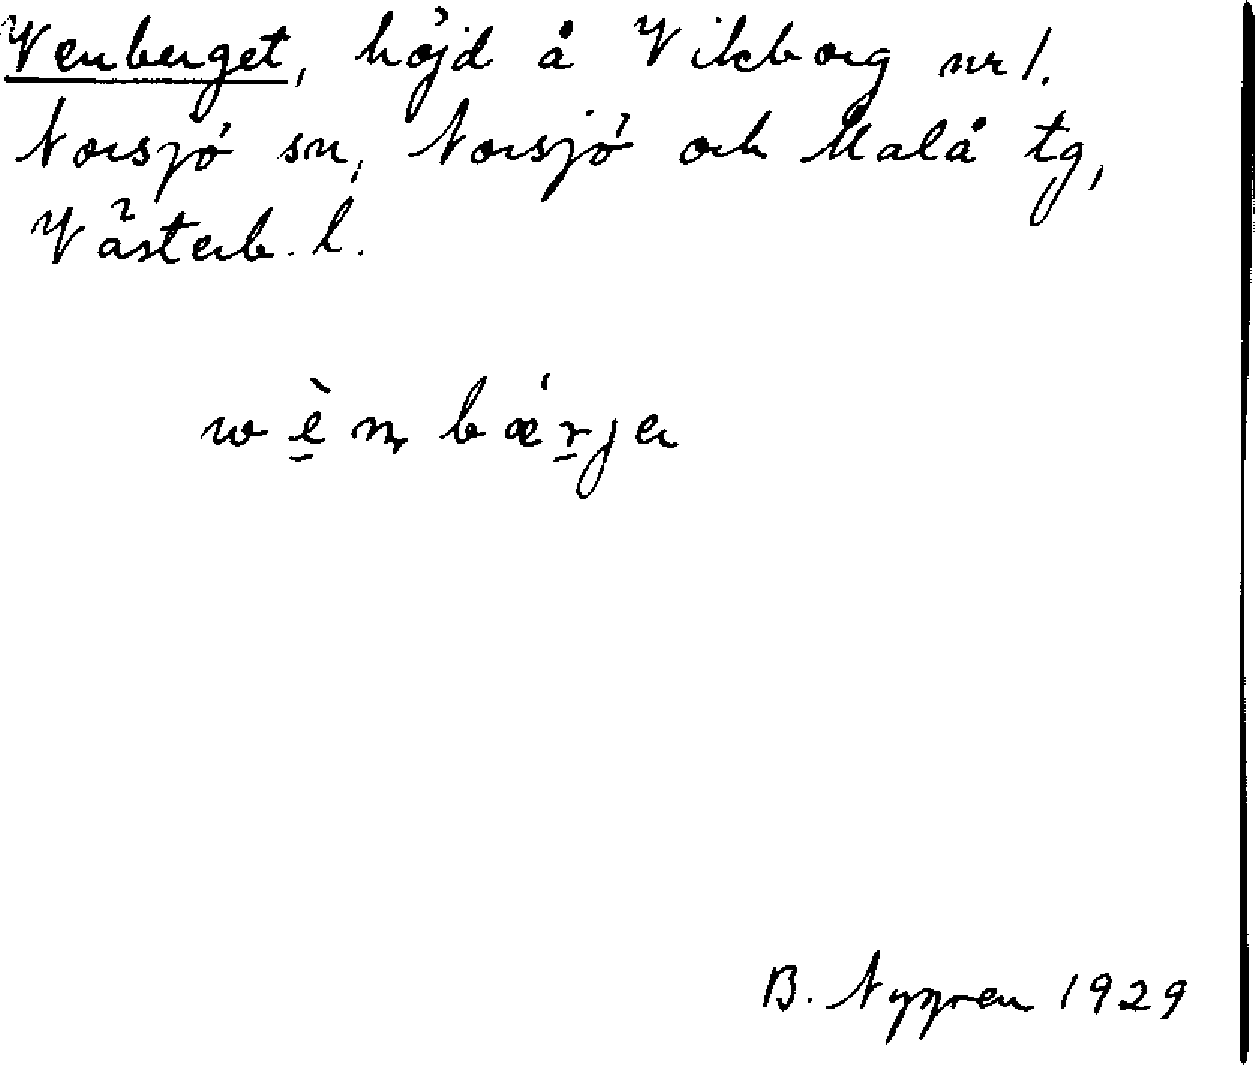 Venberget, höjd å Vikborg nr 1.
Norsjö sn, Norsjö och Malå tg,
Västerb. l.
wèn bǽrjen
B. Nygren 1929